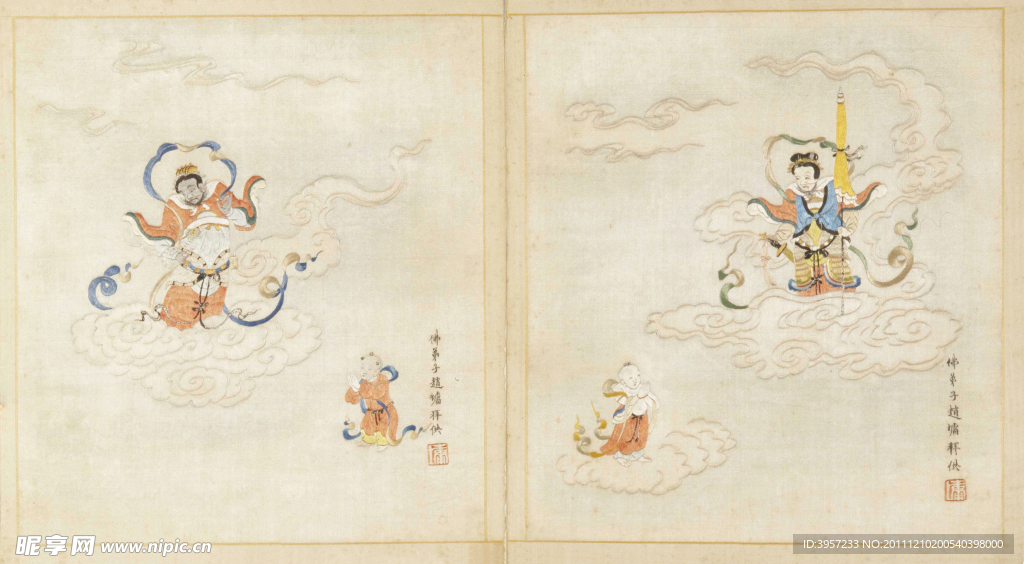 佛弟子趙墉拜供
佛弟子趙墉拜供
昵享网 www.nipic.cn
ID:3957233 NO:20111210200540398000